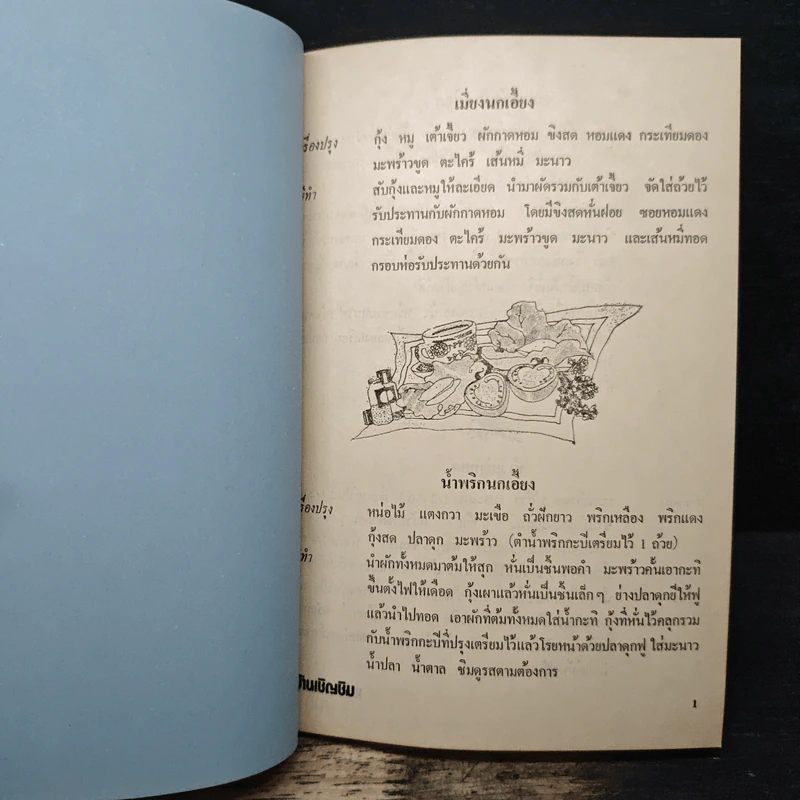 เมี่ยงนกเอี้ยง
กุ้ง หมู เต้าเจี้ยว ผักกาดหอม ขิงสด หอมแดง กระเทียมดอง
มะพร้าวขูด ตะไคร้ เส้นหมี่ มะนาว
สับกุ้งและหมูให้ละเอียด นำมาผัดรวมกับเต้าเจี้ยว จัดใส่ถ้วยไว้
รับประทานกับผักกาดหอม โดยมีขิงสดหั่นฝอย ซอยหอมแดง
กระเทียมดอง ตะไคร้ มะพร้าวขูด มะนาว และเส้นหมี่ทอด
กรอบห่อรับประทานด้วยกัน
น้ำพริกนกเอี้ยง
หน่อไม้ แตงกวา มะเขือ ถั่วฝักยาว พริกเหลือง พริกแดง
กุ้งสด ปลาดุก มะพร้าว (ตำน้ำพริกกะปีเตรียมไว้ 1 ถ้วย)
นำผักทั้งหมดมาต้มให้สุก หั่นเป็นชิ้นพอคำ มะพร้าวคั้นเอากะทิ
ขึ้นตั้งไฟให้เดือด กุ้งเผาแล้วหั่นเป็นชิ้นเล็กๆ ย่างปลาดุกยีให้ฟู
แล้วนำไปทอด เอาผักที่ต้มทั้งหมดใส่น้ำกะทิ กุ้งที่หั่นไว้คลุกรวม
กับน้ำพริกกะปีที่ปรุงเตรียมไว้แล้วโรยหน้าด้วยปลาดุกฟู ใส่มะนาว
น้ำปลา น้ำตาล ชิมดูรสตามต้องการ
1